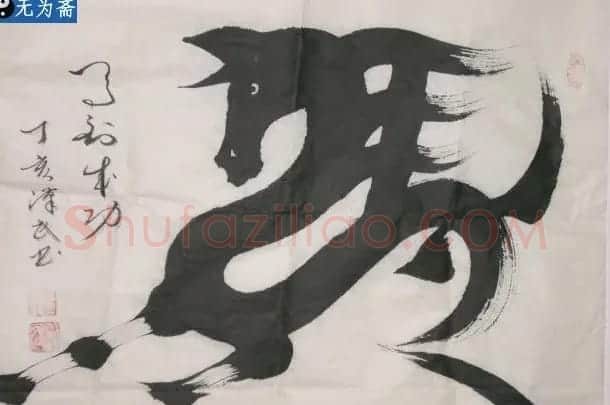 无为斋
马到成功
丁亥 书
Shufaziliao.com